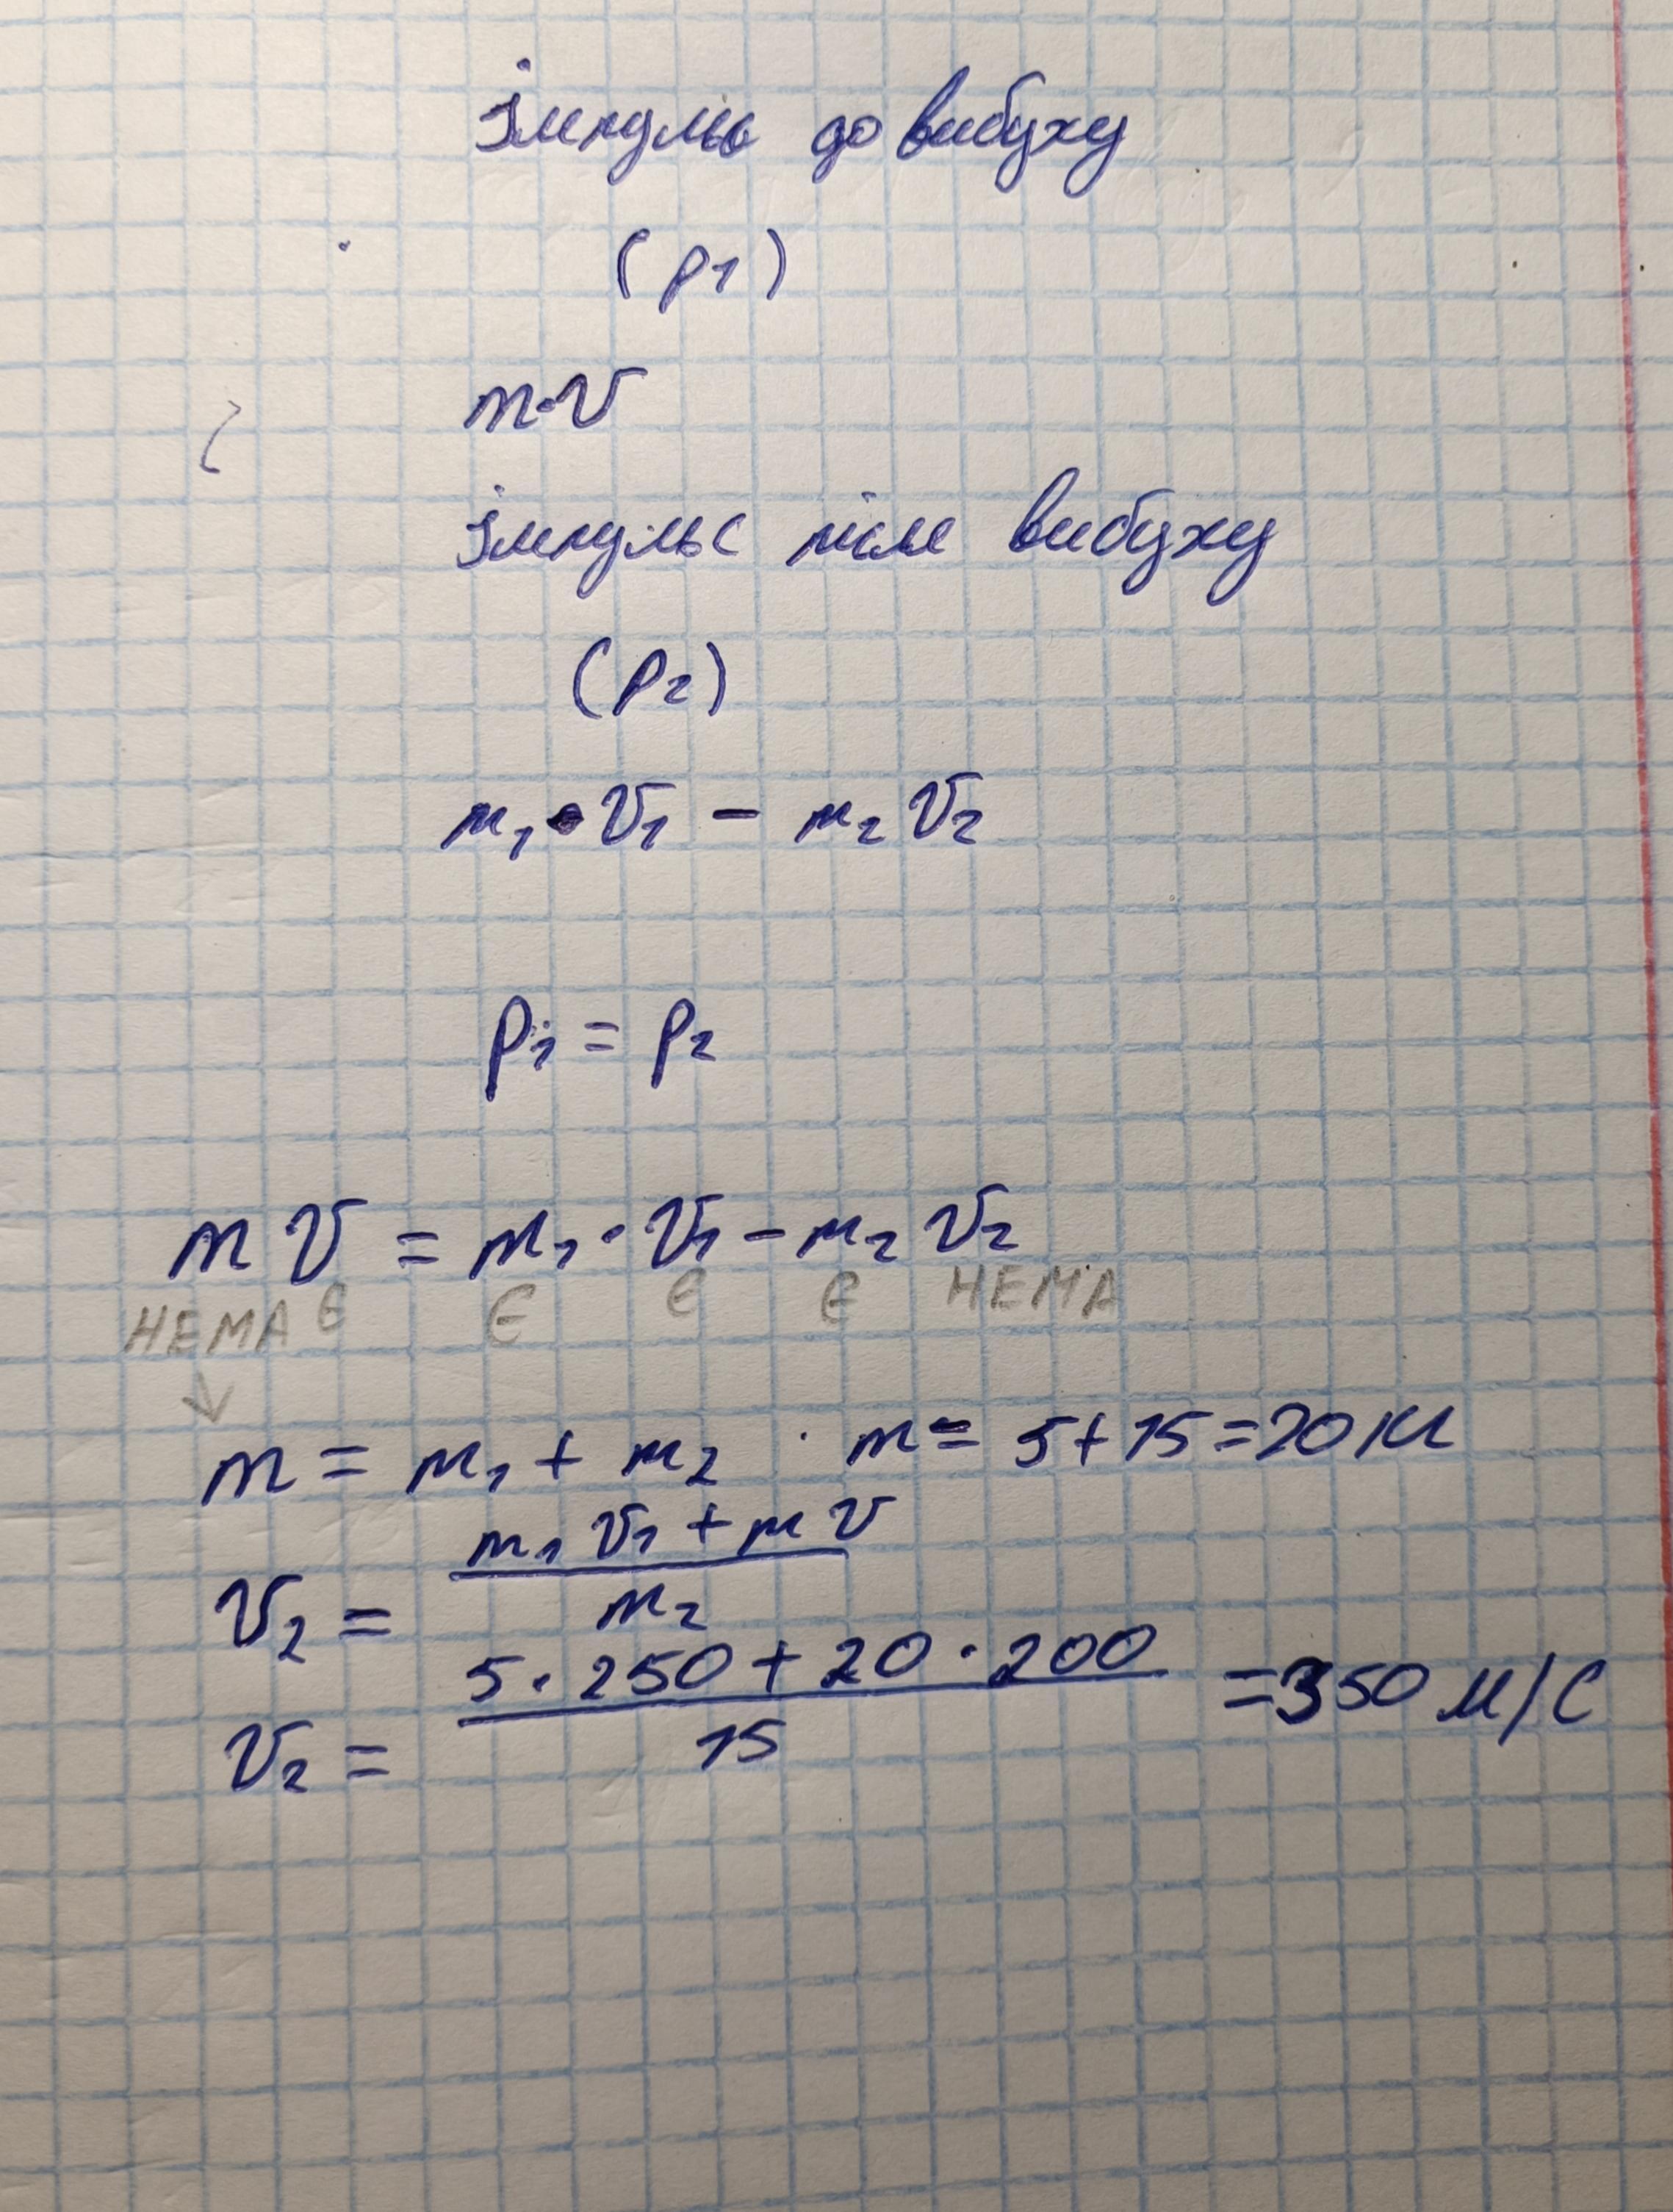 Імпульс до вибуху
(p1)
m·v
Імпульс після вибуху
(p2)
m1·v1 - m2 v2
p1 = p2
m v = m1·v1 - m2 v2
НЕМА Є Є Є Є НЕМА
↓
m = m1 + m2 m = 5+15=20 кг
v2 = (m1 v1 + m v) / m2
v2 = (5·250+20·200) / 15 =350 м/с